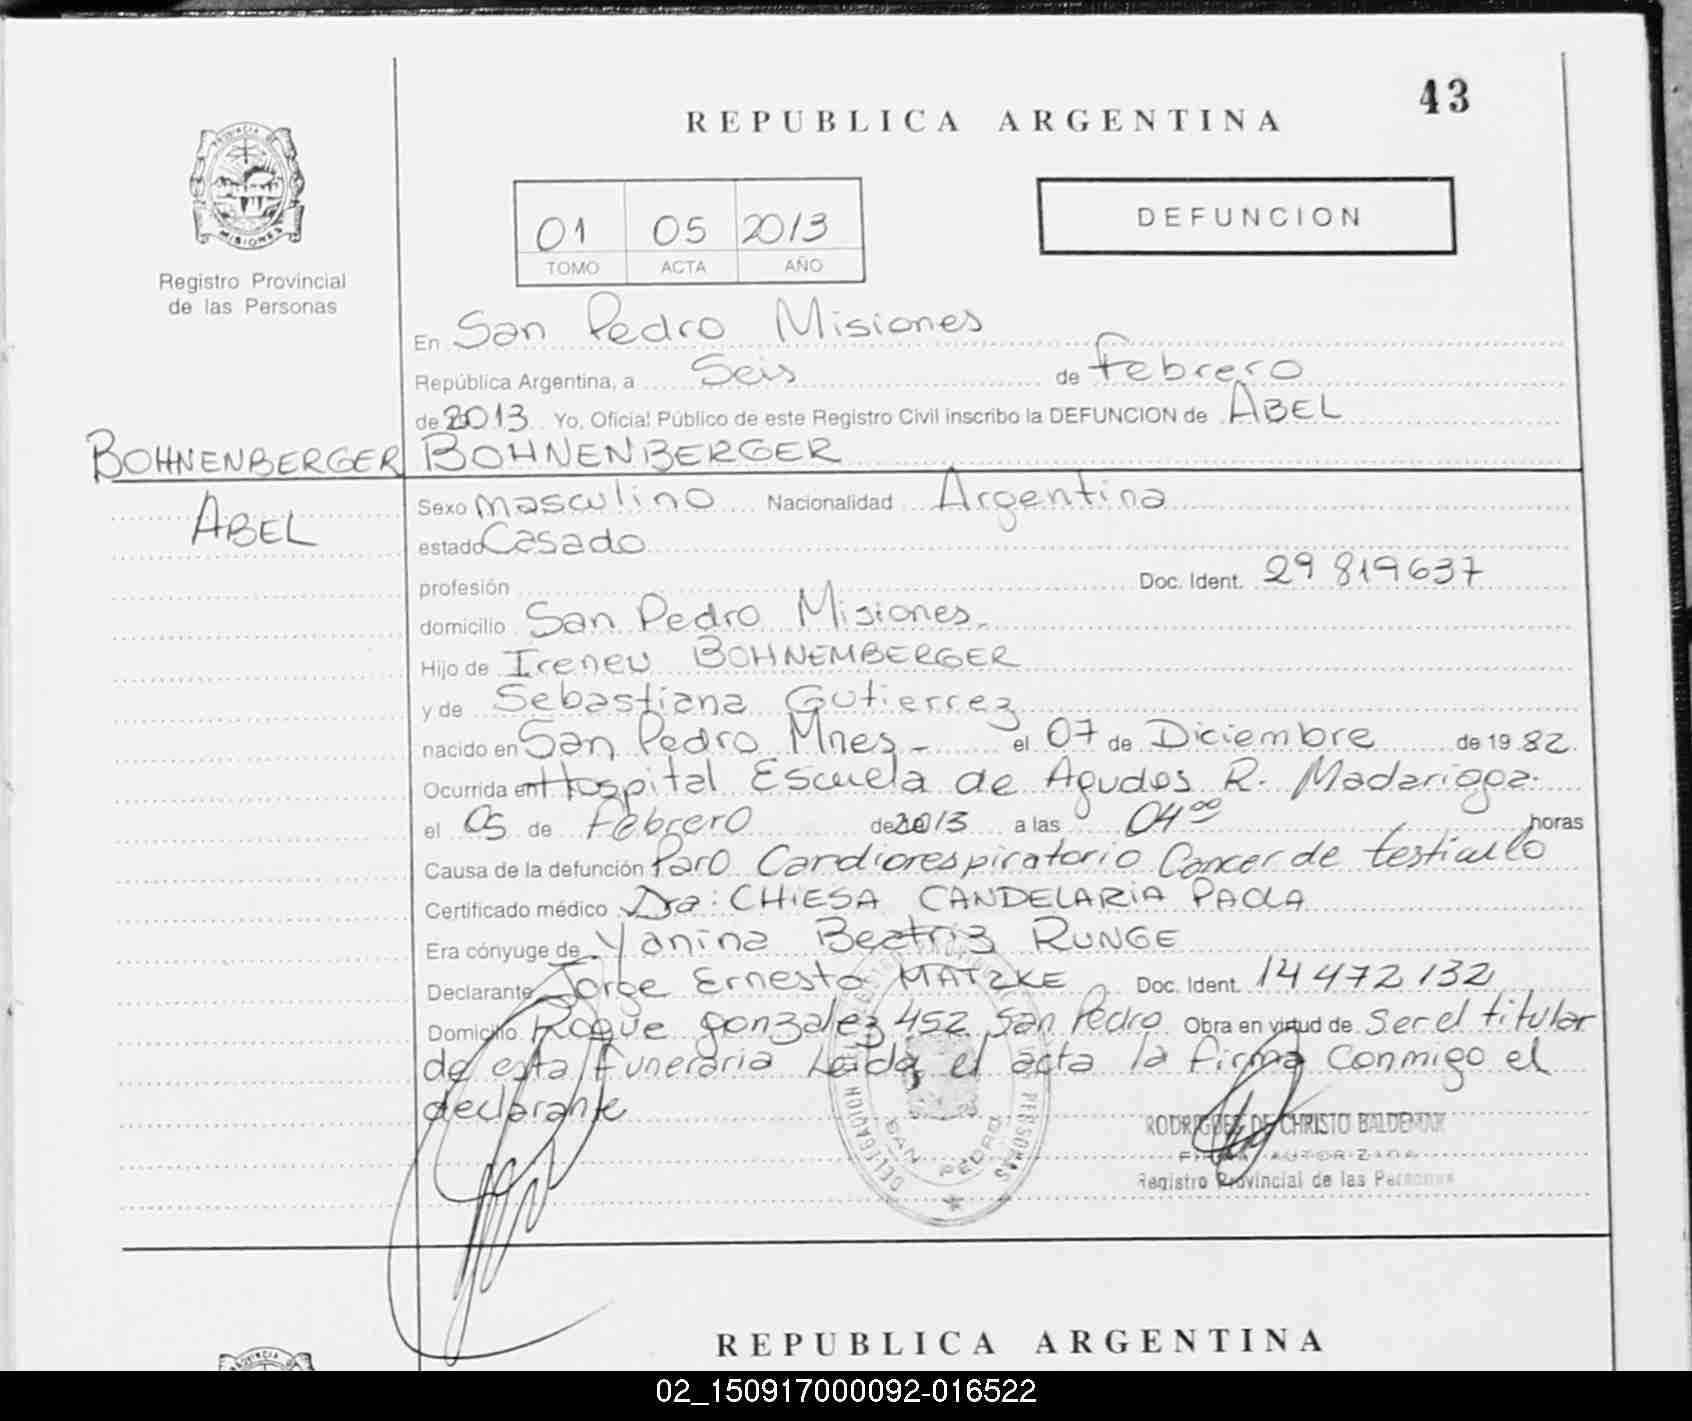 43
REPUBLICA ARGENTINA
PROVINCIA DE
MISIONES
Registro Provincial
de las Personas
01 05 2013
TOMO ACTA AÑO
DEFUNCION
En San Pedro Misiones
República Argentina, a Seis de Febrero
de 2013 Yo, Oficial Público de este Registro Civil inscribo la DEFUNCION de ABEL
BOHNENBERGER BOHNENBERGER
ABEL
Sexo masculino Nacionalidad Argentina
estado Casado
profesión Doc. Ident. 29 819637
domicilio San Pedro Misiones.
Hijo de Ireneu BOHNEMBERGER
y de Sebastiana Gutierrez
nacido en San Pedro Mnes - el 07 de Diciembre de 19 82.
Ocurrida en Hospital Escuela de Agudos R. Madariaga.
el 05 de Febrero de 2013 a las 04⁰⁰ horas
Causa de la defunción Paro Cardiorespiratorio Cancer de testiculo
Certificado médico Dra: CHIESA CANDELARIA PAOLA
Era cónyuge de Yanina Beatriz RUNGE
Declarante Jorge Ernesto MATZKE Doc. Ident. 14 472 132
Domicilio Roque gonzalez 452 San Pedro Obra en virtud de Ser el titular
de esta Funeraria Leida el acta la firma Conmigo el
declarante
DELEGACION SAN PEDRO PERSONAS
RODRIGUES DE CHRISTO BALDEMAR
FIRMA AUTORIZADA
Registro Provincial de las Personas
REPUBLICA ARGENTINA
PROVINCIA
02_150917000092-016522